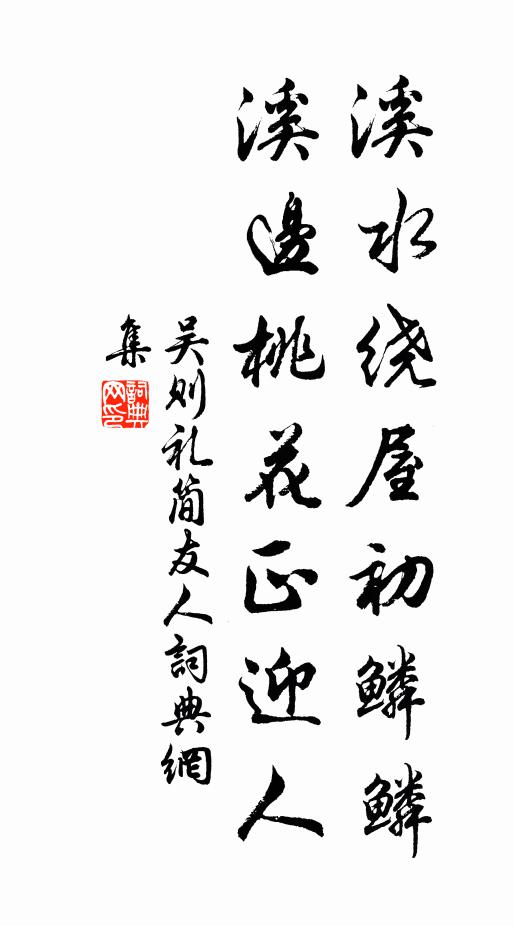 溪水绕屋初鳞鳞
溪邊桃花正迎人
吴则礼简友人詞典網
集
詞典
网印